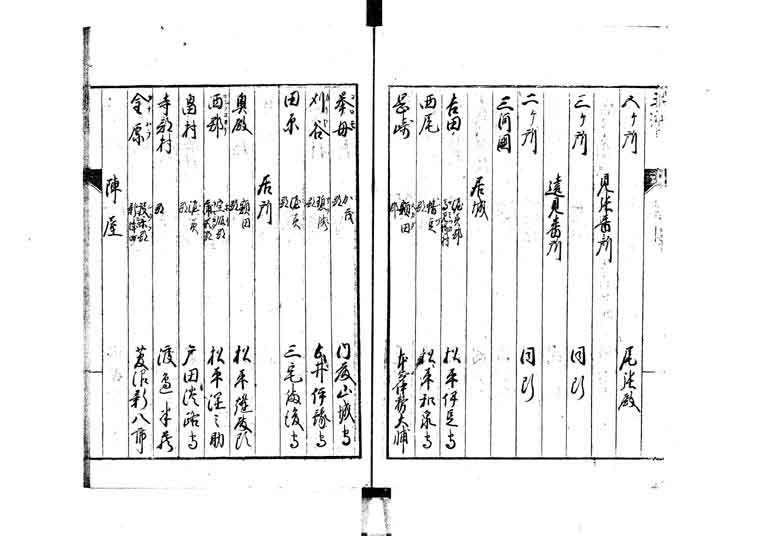 八ヶ所 尾張殿
見張番所
三ヶ所 同断
遠見番所
二ヶ所 同断
三河國
居城
吉田 渥美郡 松平伊豆守
西尾 幡豆郡 松平和泉守
岡崎 額田郡 本多中務大輔
挙母 加茂 内藤山城守
刈谷 郡 土井伊豫守
田原 渥美郡 三宅備後守
居所
奥殿 額田郡 松平縫殿頭
西郡 宝飯郡 松平
畠村 渥美郡 戸田淡路守
寺部村 郡 渡邊半蔵
金原 菅沼新八郎
陣屋